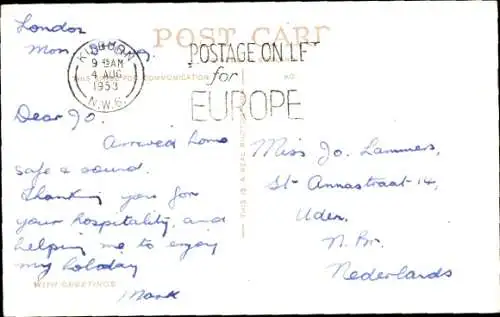 London
Mon
POST CARD
KILBURN
9 15 AM
4 AUG
1953
N.W.6.
POSTAGE ON LET
for
EUROPE
Dear Jo.
Arrived home
safe & sound.
Thanking you for
your hospitality, and
helping me to enjoy
my holiday
Mark
WITH GREETINGS
THIS IS A REAL PHOTO
Miss Jo. Lammers,
St Annastraat 14,
Uden.
N. Br.
Nederlands